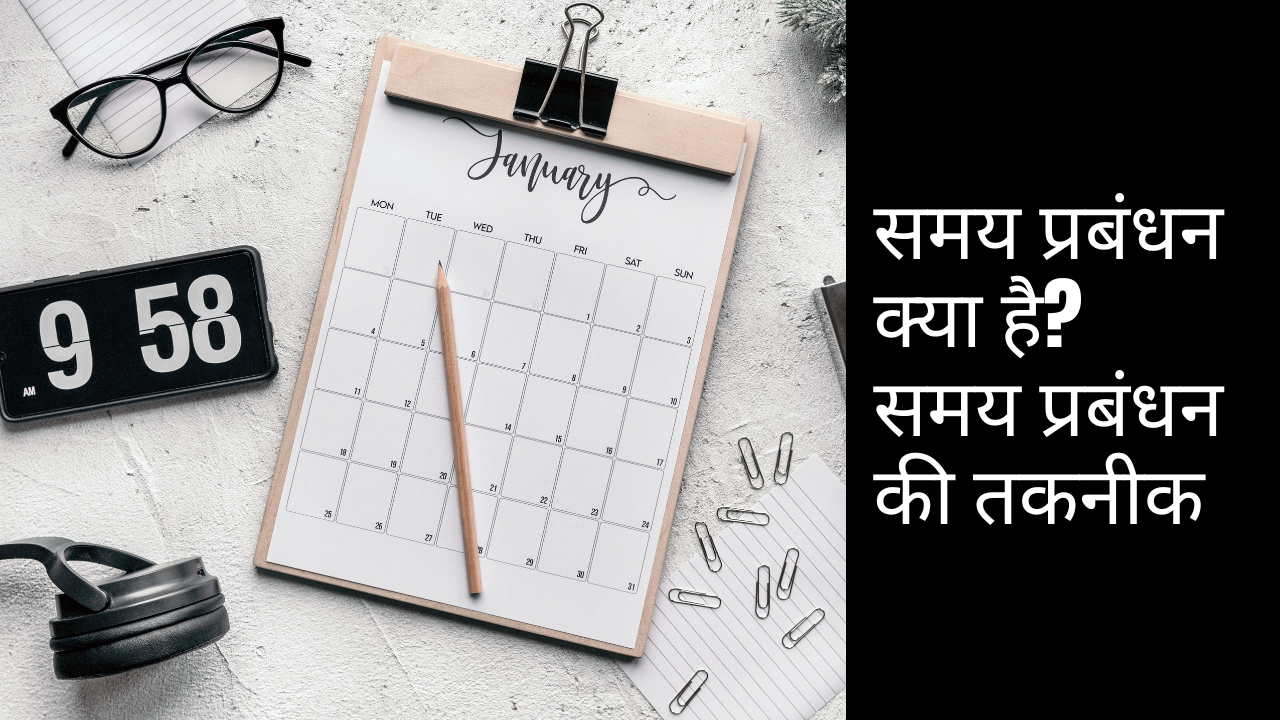 January
MON TUE WED THU FRI SAT SUN
1 2 3
4 5 6 7 8 9 10
11 12 14 15 16 17
18 19 20 21 22 23 24
25 26 27 28 29 30 31
9 58
AM
समय प्रबंधन
क्या है?
समय प्रबंधन
की तकनीक